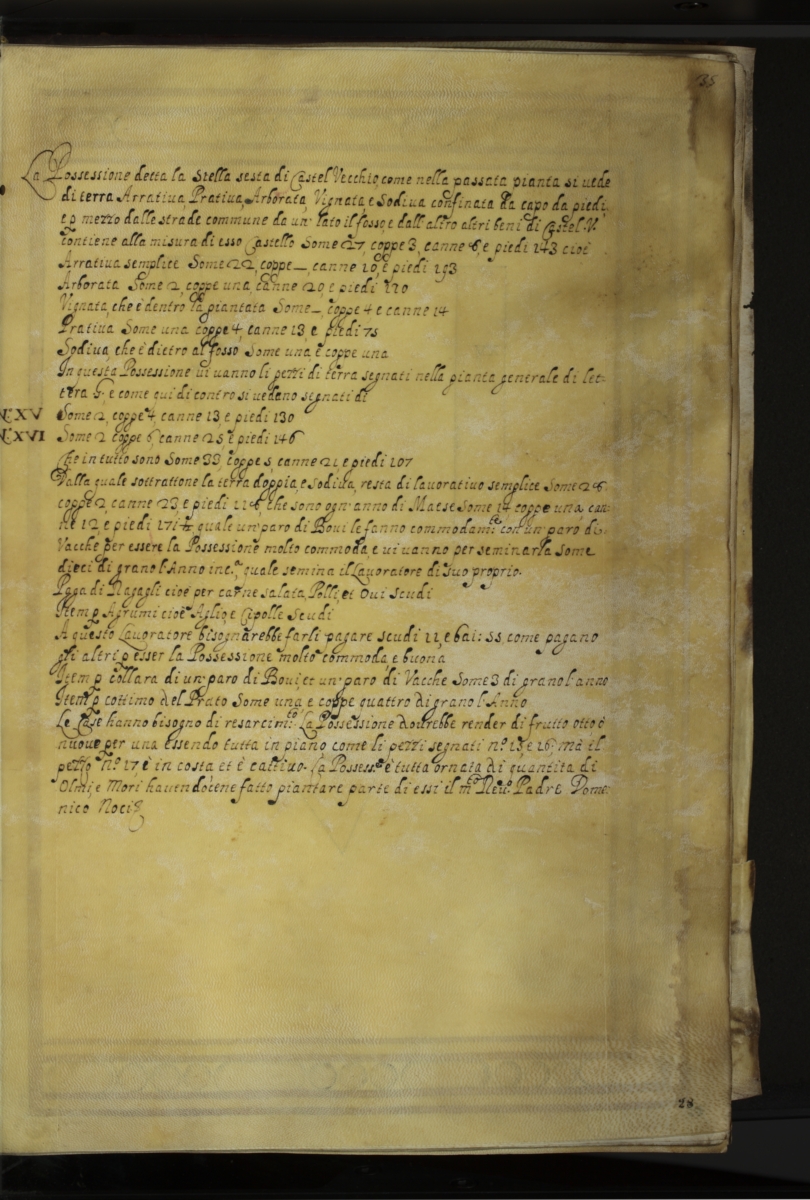 35
La Possessione detta la Stella sesta di Castel Vecchio, come nella passata pianta si uede
di terra Arratiua, Pratiua, Arborata, Vignata, e Sodiua confinata da capo da piedi,
e p mezzo dalle strade commune da un' lato il fosso, e dall' altro altri beni di Castel V.º
contiene alla misura di esso Castello Some 27, coppe 3, canne 6, e piedi 143 cioè
Arratiua semplice Some 22, coppe —, canne 10, e piedi 193
Arborata Some 2, coppe una, canne 20, e piedi 110
Vignata, che è dentro la piantata Some —, coppe 4 e canne 14
Pratiua Some una coppe 4, canne 13, e piedi 75
Sodiua, che è dietro al fosso Some una e coppe una
In questa Possessione ui uanno li pezzi di terra segnati nella pianta generale di let-
tera G. e come qui di contro si uedano segnati di
N.º XV Some 2, coppe 4, canne 13 e piedi 130
N.º XVI Some 2 coppe 6 canne 25 e piedi 146
Che in tutto sono Some 33, coppe 5, canne 21, e piedi 107
Dalla quale sottrattone la terra doppia, e Sodiua, resta di lauoratiuo semplice Some 28
coppe 2, canne 23, e piedi 118, che sono ogn' anno di Maese Some 14 coppe una can-
ne 12, e piedi 171½ quale un' paro di Boui le fanno commodam.te con un' paro di
Vacche per essere la Possessione molto commoda, e ui uanno per seminarla Some
dieci di grano l'Anno inc.a quale semina il Lauoratore di suo proprio.
Paga di Regagli cioè per carne salata, Polli, et Oui Scudi
Item p Agrumi cioè Aglio, e Cipolle Scudi
A questo Lauoratore bisognarebbe farli pagare scudi 11, e bai: 55 come pagano
gli altri p esser la Possessione molto commoda, e buona
Item p collara di un' paro di Boui, et un' paro di Vacche Some 3 di grano l'anno
Item p cottimo del Prato Some una e coppe quattro di grano l'Anno
Le Case hanno bisogno di resarcim.to La Possessione dourebbe render di frutto otto è
nuoue per una essendo tutta in piano come li pezzi segnati n.º 15, e 16, mà il
pezzo n.º 17 è in costa, et è cattiuo. La Possess.ne è tutta ornata di quantita di
Olmi, e Mori hauendocene fatto piantare parte di essi il m.to Reu.º Padre Dome-
nico Noci
28